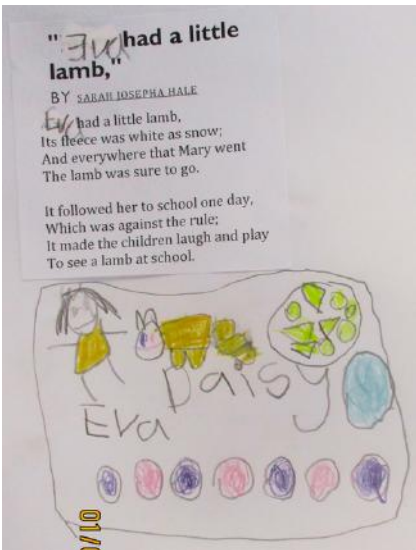 "Eva had a little
lamb,"
BY SARAH JOSEPHA HALE
Eva had a little lamb,
Its fleece was white as snow;
And everywhere that Mary went
The lamb was sure to go.
It followed her to school one day,
Which was against the rule;
It made the children laugh and play
To see a lamb at school.
Daisy
Eva
01/